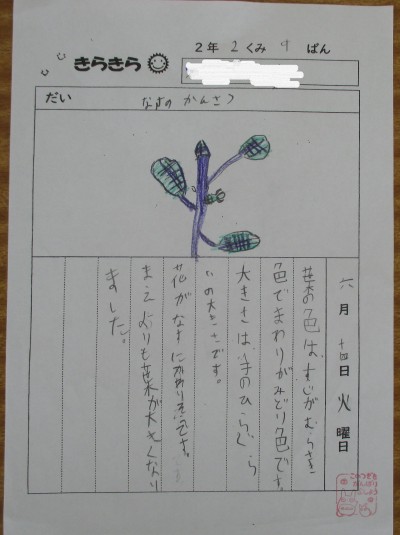 2年 2くみ 9 ばん
きらきら
だい なすの かんさつ
六月十四日 火曜日
葉の色は、すじがむらさき
色でまわりがみどり色です。
大きさは、手のひらぐら
いの大きさです。
花がなすにかわりそうです。
まえよりも葉が大きくなり
ました。